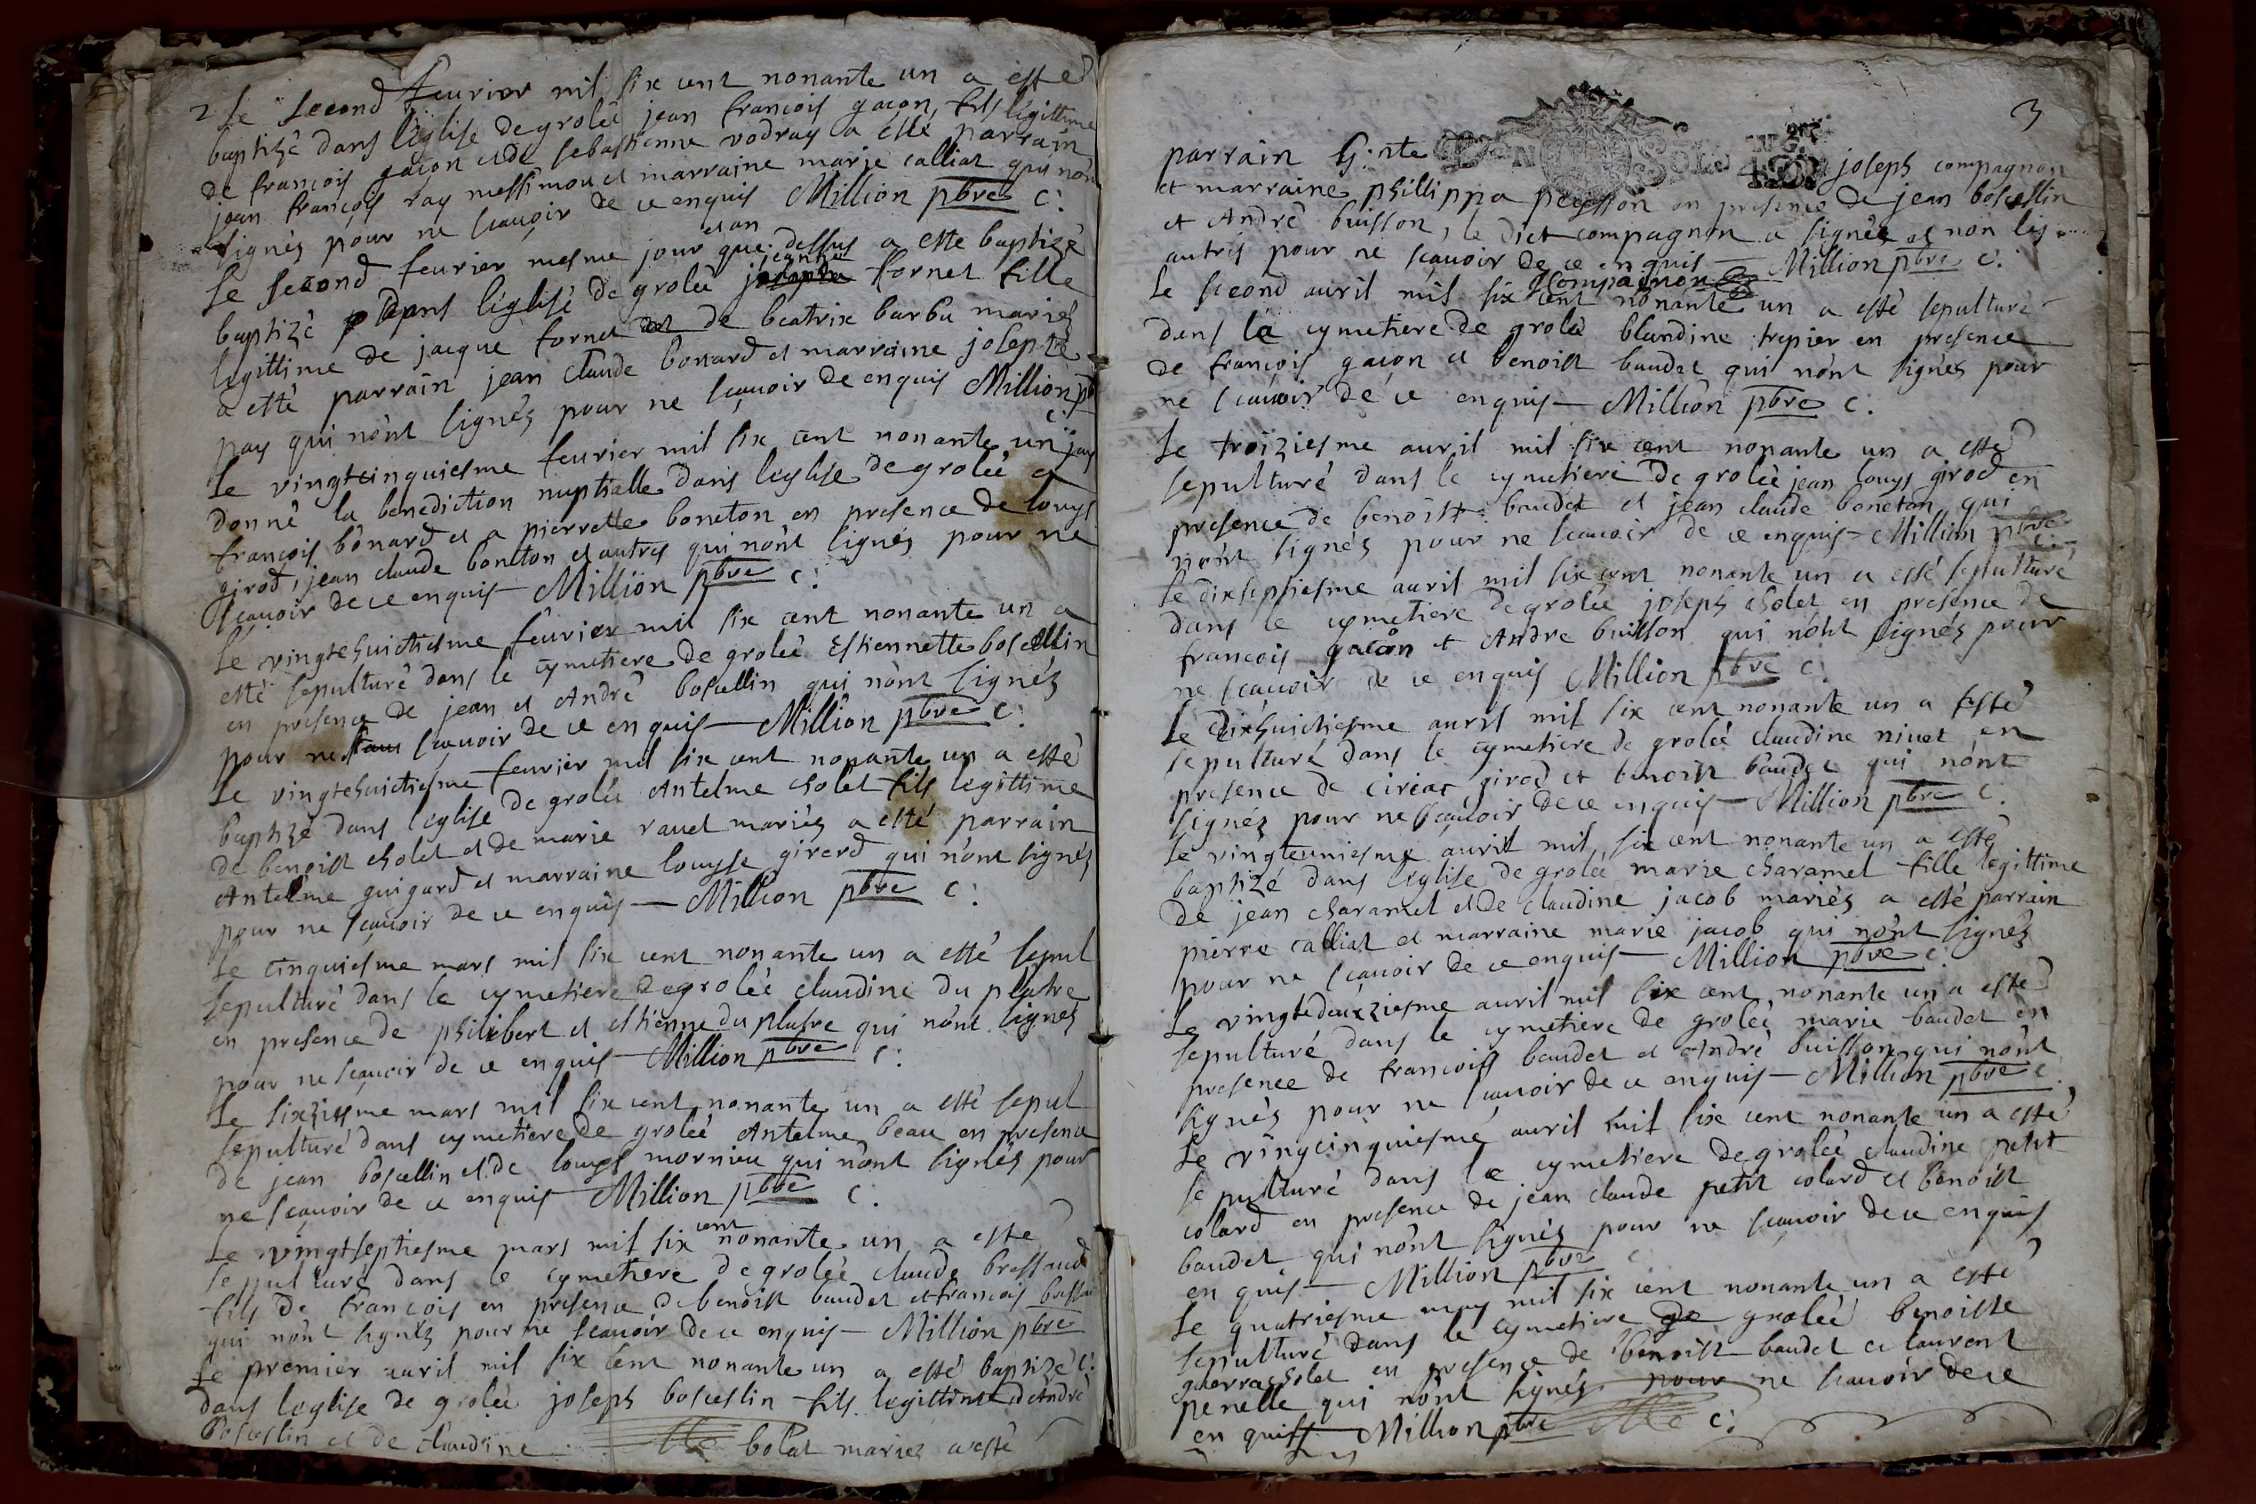 2 Le second feurier mil six cent nonante un a esté
baptizé dans l'eglise de grolée jean francois gacon fils légittime
de francois gacon et de sebastienne vodray a esté parrain
jean francois ray messimou et marraine marie calliat qui n'ont
signés pour ne scauoir de ce enquis Million pbre c:
Le second feurier mesme jour et an que dessus a esté baptizé
baptizé dans l'eglise de grolée jeanne fornet fille
legittime de jacque fornet et de beatrix barbu mariés
a esté parrain jean claude bonard et marraine josepte
pay qui n'ont signés pour ne scauoir de enquis Million pb
c:
Le vingtcinquiesme feurier mil six cent nonante un jay
donné la benediction nuptialle dans leglise de grolée a
francois bonard et a pierrette boneton en presence de louys
girod, jean claude boneton et autres qui n'ont signés pour ne
scauoir de ce enquis — Million pbre c:
Le vingtehuictiesme feurier mil six cent nonante un a
esté sepulturé dans le cymetiere de grolée Estiennette boscellin
en presence de jean et André boscellin qui n'ont signés
pour ne scauoir de ce enquis — Million pbre c:
Le vingtehuictiesme feurier mil six cent nonante un a esté
baptizé dans l'eglise de grolée Antelme cholet fils legittime
de benoist cholet et de marie rauet mariés a esté parrain
Antelme guigard et marraine louyse girerd qui n'ont signés
pour ne scauoir de ce enquis — Million pbre c:
Le cinquiesme mars mil six cent nonante un a esté sepul
sepulturé dans le cymetiere de grolée claudine du platre
en presence de philibert et estienne du platre qui n'ont signés
pour ne scauoir de ce enquis — Million pbre c:
Le sixziesme mars mil six cent nonante un a esté sepul
sepulturé dans cymetiere de grolée Antelme beau en presence
de jean boscellin et de louys mornieu qui n'ont signés pour
ne scauoir de ce enquis — Million pbre c.
Le vingtseptiesme mars mil six cent nonante un a esté
sepulturé dans le cymetiere de grolée claude bressaud
fils de francois en presence de benoist baudet et francois
qui n'ont signés pour ne scauoir de ce enquis — Million pbre
Le premier auril mil six cent nonante un a esté baptizé c:
dans leglise de grolée joseph boscellin fils legittime d'André
boscellin et de claudine bolat mariez a esté
3
parrain joseph compagnon
et marraine phillippa en presence de jean boscellin
et André buisson, le dict compagnon a signés et non les
autris pour ne scauoir de ce enquis — Million pbre c.
Compagnon
Le second auril mil six cent nonante un a esté sepulturé
dans le cymetiere de grolée blandine trepier en presence
de francois gacon et benoist baudet qui n'ont signés pour
ne scauoir de ce enquis — Million pbre c.
Le troiziesme auril mil six cent nonante un a esté
sepulturé dans le cymetiere de grolée jean louys girod en
presence de benoist baudet et jean claude boneton qui
n'ont signés pour ne scauoir de ce enquis — Million pbre
c:
Le dixseptiesme auril mil six cent nonante un a esté sepulturé
dans le cymetiere de grolée joseph cholet en presence de
francois gacon et Andre buisson qui n'ont signés pour
ne scauoir de ce enquis Million pbre c:
Le dixhuictiesme auril mil six cent nonante un a esté
sepulturé dans le cymetiere de grolée claudine niuet en
presence de ciriac girod et benoist baudet qui n'ont
signés pour ne scauoir de ce enquis — Million pbre c.
Le vingteuniesme auril mil six cent nonante un a esté
baptizé dans l'eglise de grolée marie charamel fille legittime
de jean charamel et de claudine jacob mariés a esté parrain
pierre calliat et marraine marie jacob qui n'ont signés
pour ne scauoir de ce enquis — Million pbre c.
Le vingtedeuxziesme auril mil six cent nonante un a esté
sepulturé dans le cymetiere de grolée marie baudet en
presence de francois baudet et André buisson qui n'ont
signés pour ne scauoir de ce enquis — Million pbre c.
Le vingcinquiesme auril mil six cent nonante un a esté
sepulturé dans le cymetiere de grolée claudine petit
colard en presence de jean claude petit colard et benoist
baudet qui n'ont signés pour ne scauoir de ce enquis
en quis — Million pbre c
Le quatriesme may mil six cent nonante un a esté
sepulturé dans le cymetiere de grolée benoiste
guerracholet en presence de benoist baudet et laurent
penelle qui n'ont signés pour ne scauoir de ce
en quis Million pbre c: